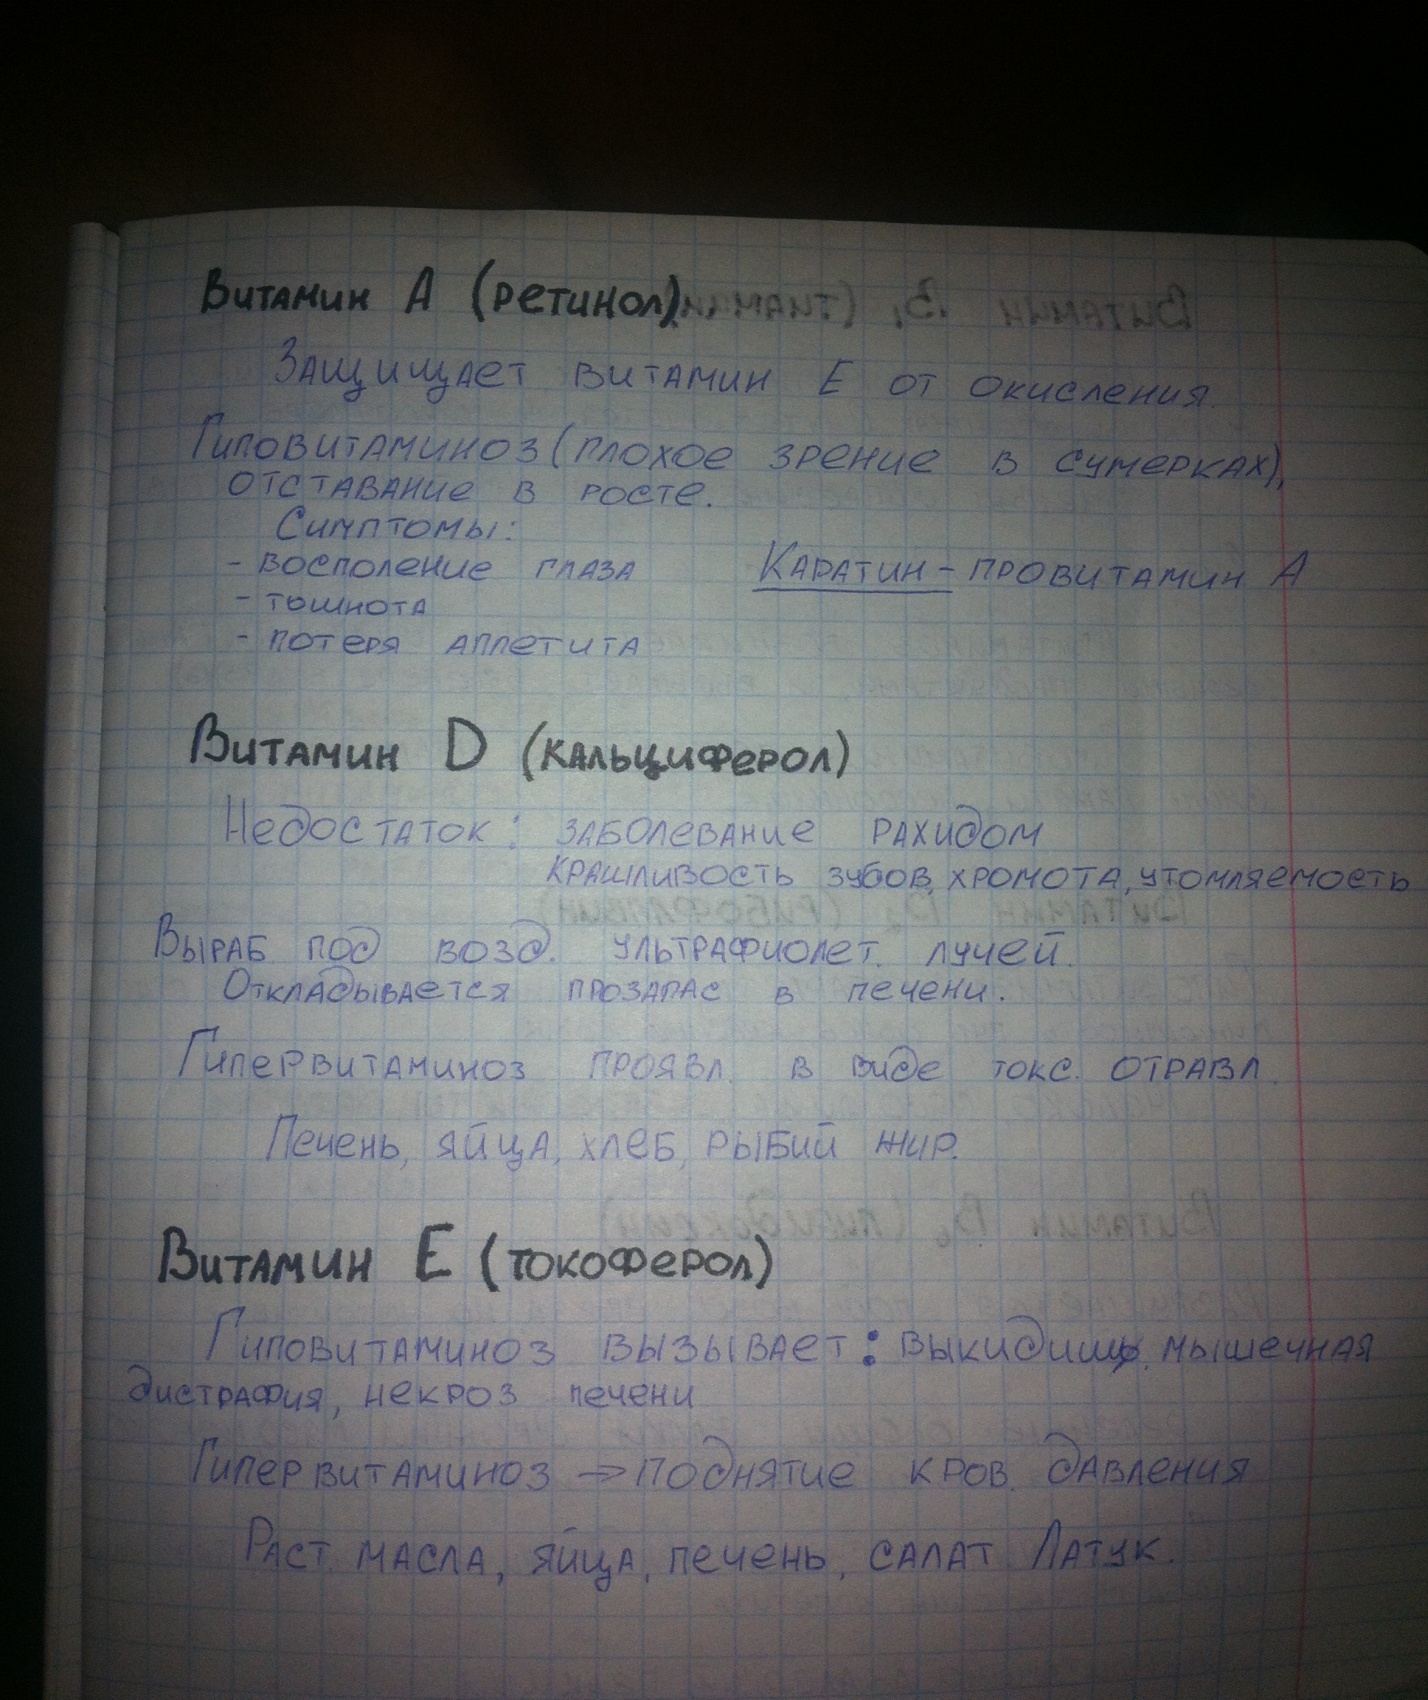 Витамин А (ретинол)
Защищает витамин Е от окисления.
Гиповитаминоз (плохое зрение в сумерках),
отставание в росте.
Симптомы:
- восполение глаза
Каратин - провитамин А
- тошнота
- потеря аппетита
Витамин D (кальциферол)
Недостаток: заболевание рахидом
крашливость зубов, хромота, утомляемость
Выраб под возд. ультрафиолет. лучей.
Откладывается прозапас в печени.
Гипервитаминоз проявл. в виде токс. отравл.
Печень, яйца, хлеб, рыбий жир.
Витамин Е (токоферол)
Гиповитаминоз вызывает: выкидиши, мышечная
дистрафия, некроз печени
Гипервитаминоз → поднятие кров. давления
Раст. масла, яйца, печень, салат Латук.